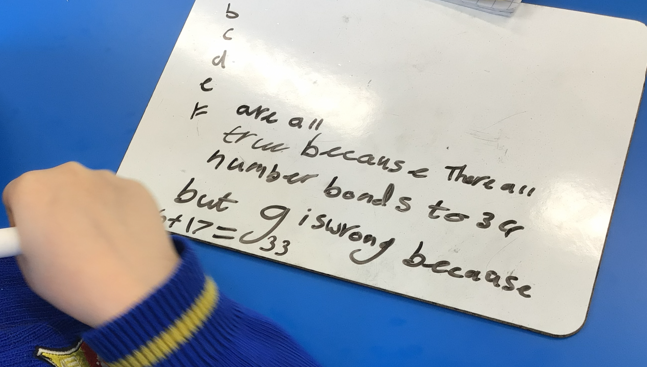 b
c
d
e
F are all
true because There all
number bonds to 34
but g is wrong because
6+17=33